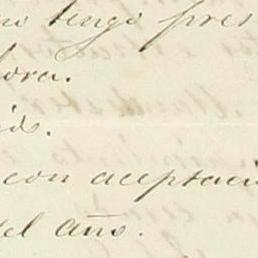 no tengo pres
ora.
id.
con aceptaci
el año.